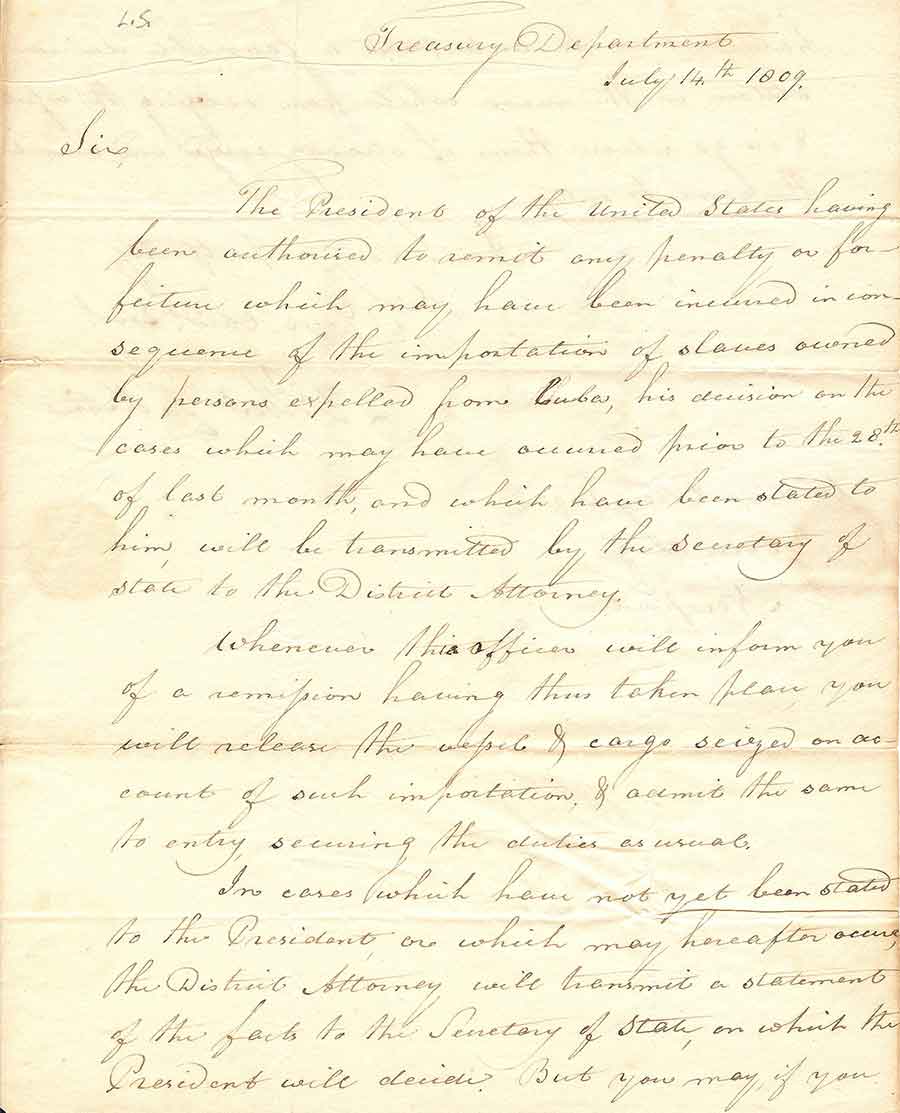 L.S.
Treasury Department
July 14.th 1809.
Sir,
The President of the United States having
been authorised to remit any penalty or for-
feiture which may have been incurred in con-
sequence of the importation of slaves owned
by persons expelled from Cuba, his decision on the
cases which may have occurred prior to the 28.th
of last month, and which have been stated to
him, will be transmitted by the secretary of
state to the District Attorney.
Whenever this officer will inform you
of a remission having thus taken place, you
will release the vessel & cargo seized on ac-
count of such importation, & admit the same
to entry, securing the duties as usual.
In cases which have not yet been stated
to the President, or which may hereafter occur,
the District Attorney will transmit a statement
of the facts to the Secretary of State, on which the
President will decide. But you may, if you